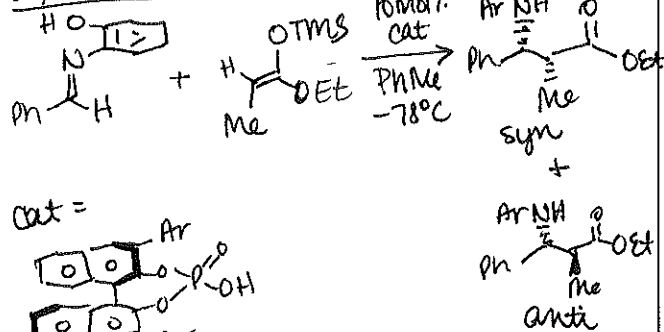 HO
N
Ph
H
+
H
OTMS
OEt
Me
10 mol%
cat
PhMe
-78°C
Ar NH
O
Ph
OEt
Me
syn
+
cat =
Ar
O
P
O
OH
O
Ar NH
O
Ph
OEt
Me
anti